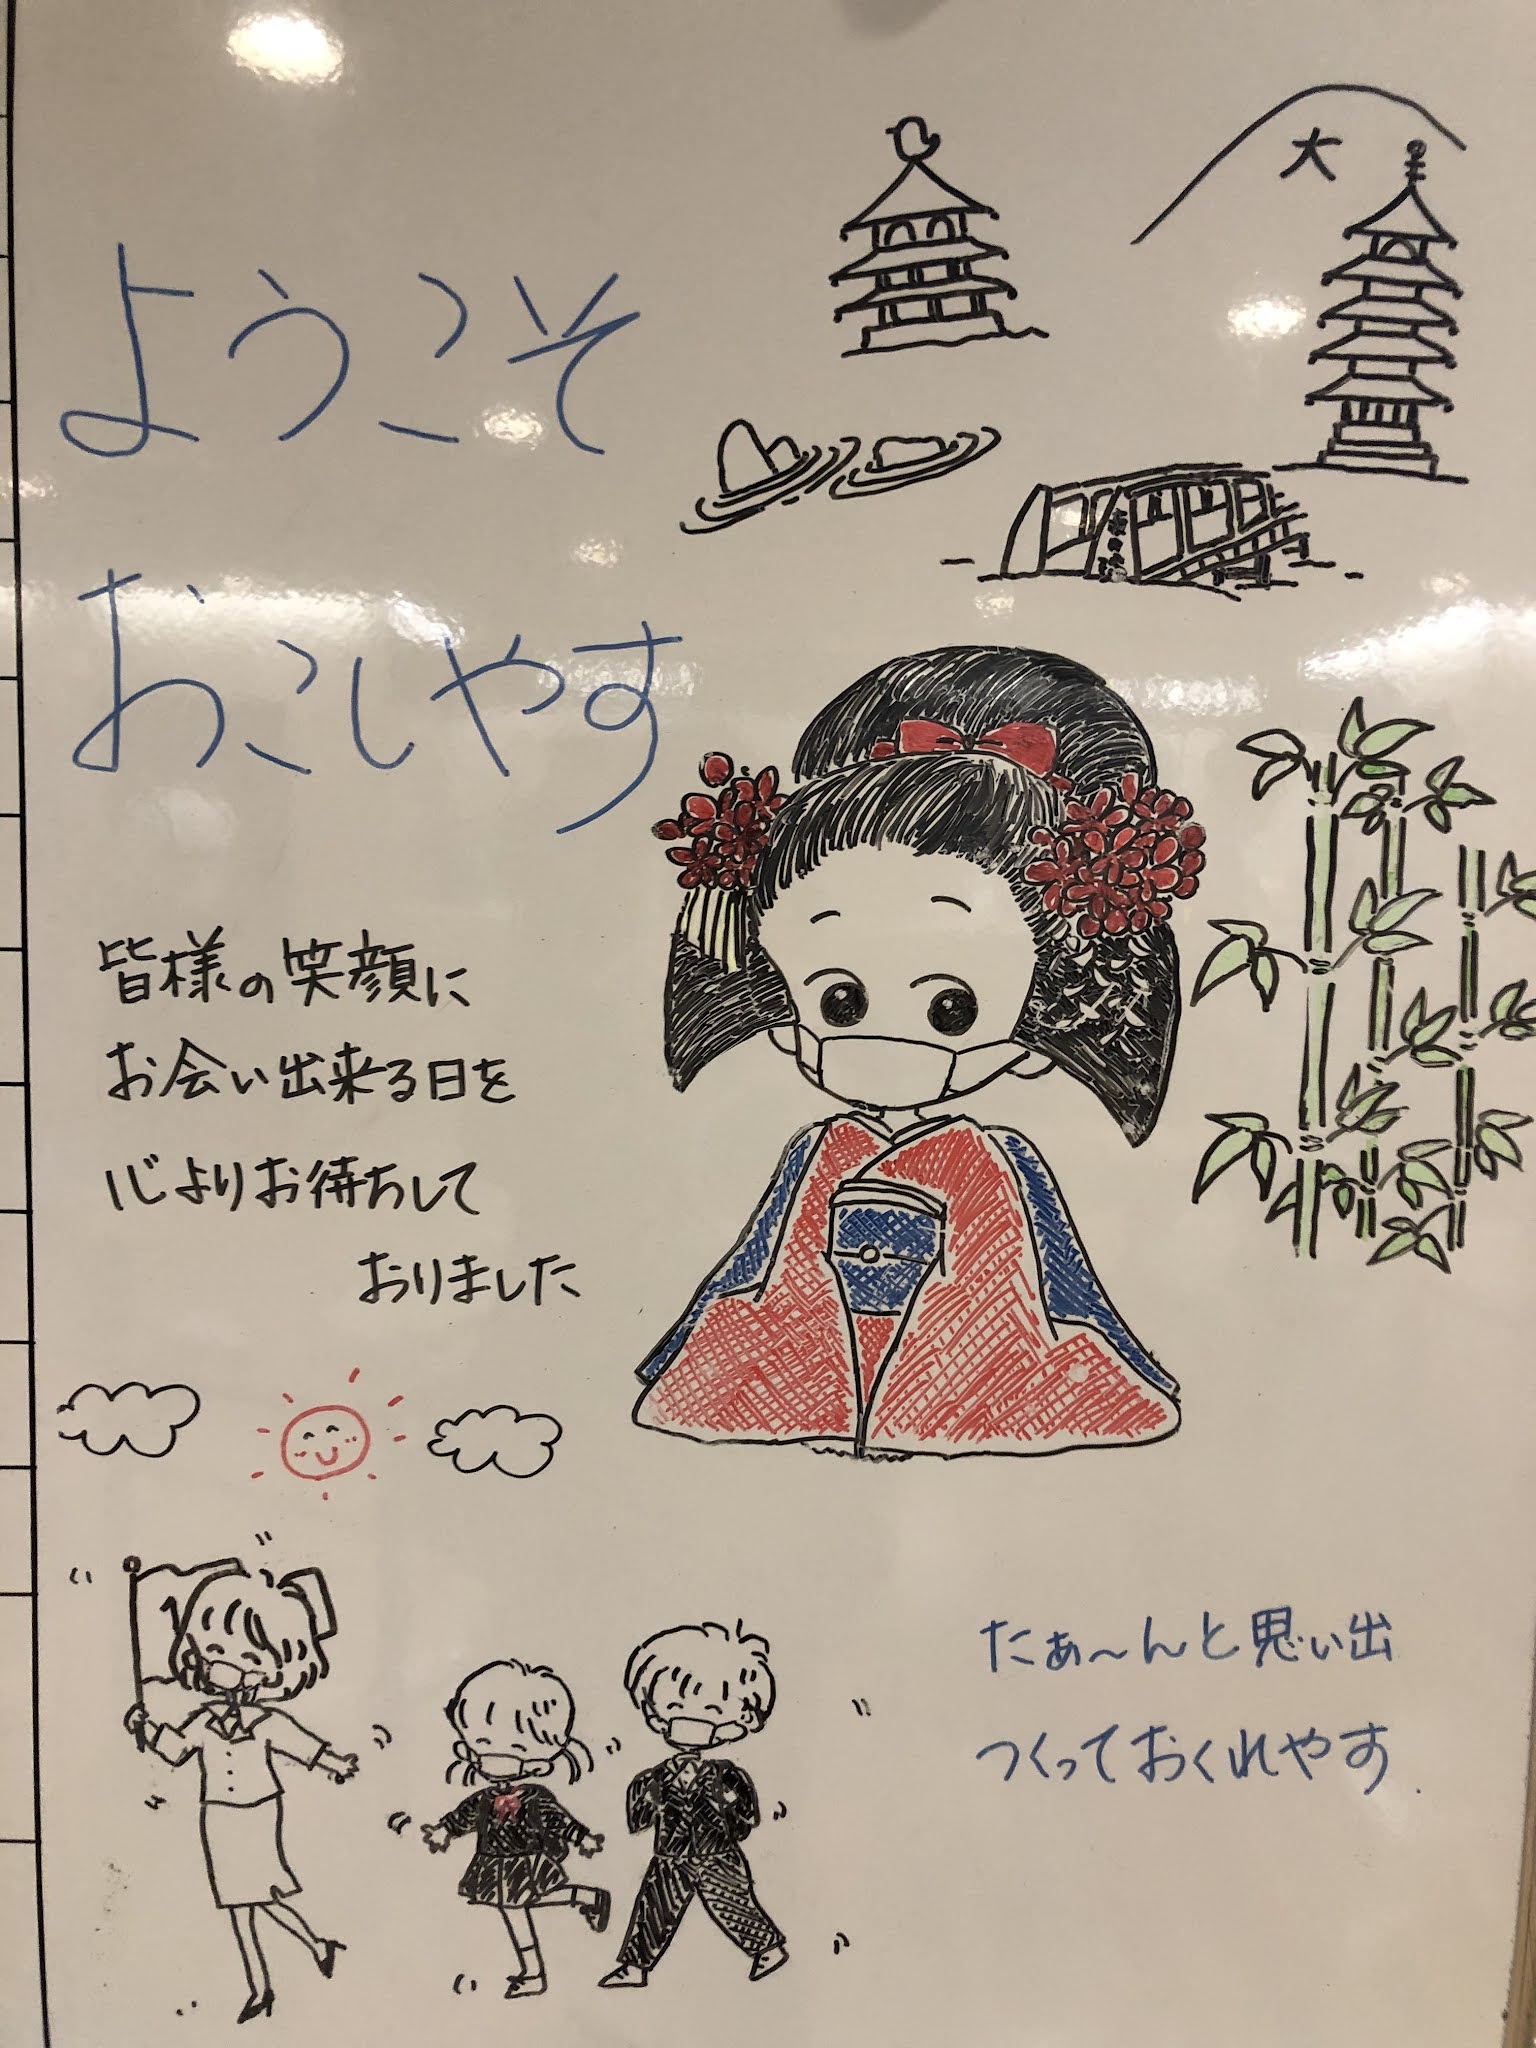 大
ようこそ
おこしやす
皆様の笑顔に
お会い出来る日を
心よりお待ちして
おりました
1
たぁ〜んと思い出
つくっておくれやす